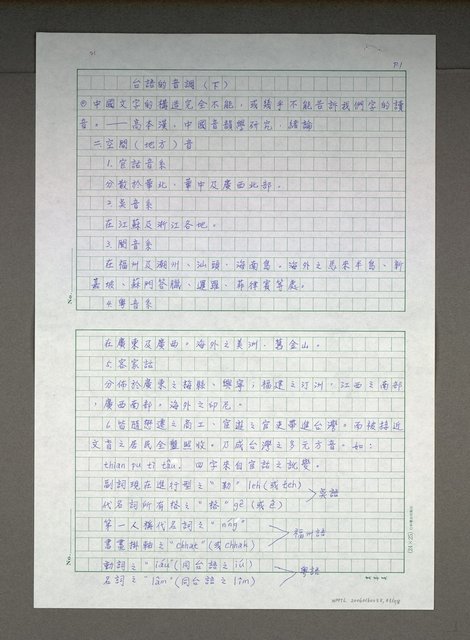 P.1
台語的音調（下）
◎中國文字的構造完全不能，或幾乎不能告訴我們字的讀
音。——高本漢，中國音韻學研究，緒論
二.空間（地方）音
1.官話音系
分散於華北、華中及廣西北部。
2.吳音系
在江蘇及浙江各地。
3.閩音系
在福州及潮州、汕頭、海南島。海外之馬來半島、新
嘉坡、蘇門答臘、暹羅、菲律賓等處。
4.粵音系
No.
在廣東及廣西。海外之美洲、舊金山。
5.客家話
分佈於廣東之梅縣、興寧；福建之汀洲，江西之南部
，廣西南部。海外之印尼。
6.皆隨戀遷之商工、宦遊之官吏帶進台灣。而被接近
文盲之居民全盤照收。乃成台灣之多元方音。如：
四字來自官話之訛變。
副詞現在進行型之"勒" leh(或teh)
吳語
代名詞所有格之"格"
第一人稱代名詞之
福州語
書畫掛軸之
動詞之 (同台語之
粵語
名詞之"lâm"(同台語之lîm)
No.
(24×25)